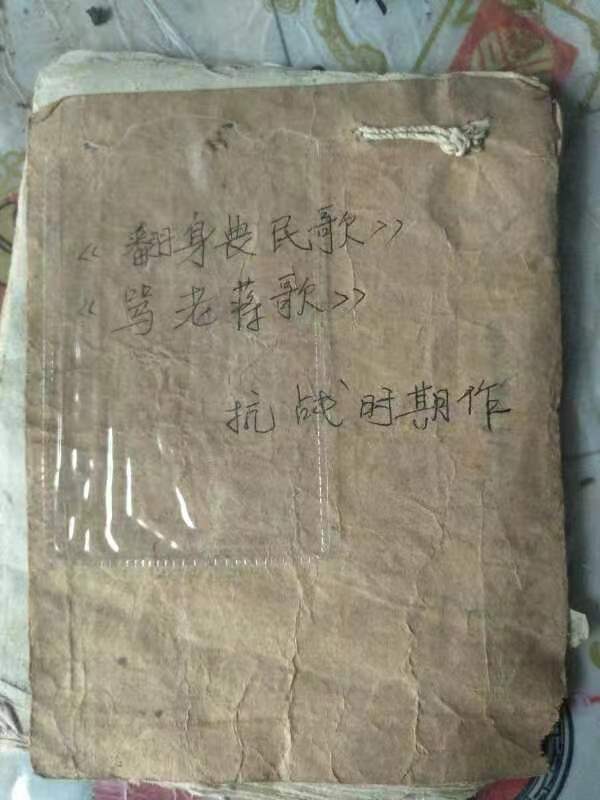 《翻身農民歌》
《骂老蒋歌》
抗战时期作